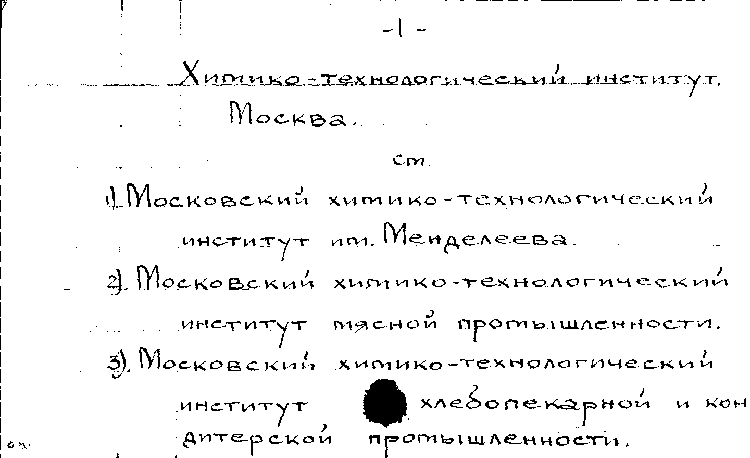 -1-
Химико-технологический институт.
Москва.
см.
1). Московский химико-технологический
институт им. Менделеева.
2). Московский химико-технологический
институт мясной промышленности.
3). Московский химико-технологический
институт хлебопекарной и кон
дитерской промышленности.